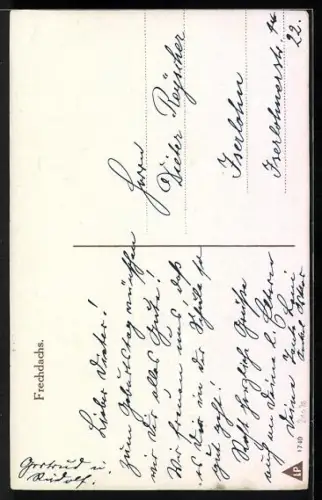 Frechdachs.
Lieber Dieter!
Zum Geburtstag wünschen
wir Dir alles Gute!
Wir freuen uns, daß
es Dir in der Schule so
gut geht!
Herzliche Grüße
auch an Deine l. Eltern
Deine Tante
Gertrud u.
Rudolf.
Herrn
Dieter Reÿscher
Iserlohn
Iserlohnerstr.
22.
LP
1740